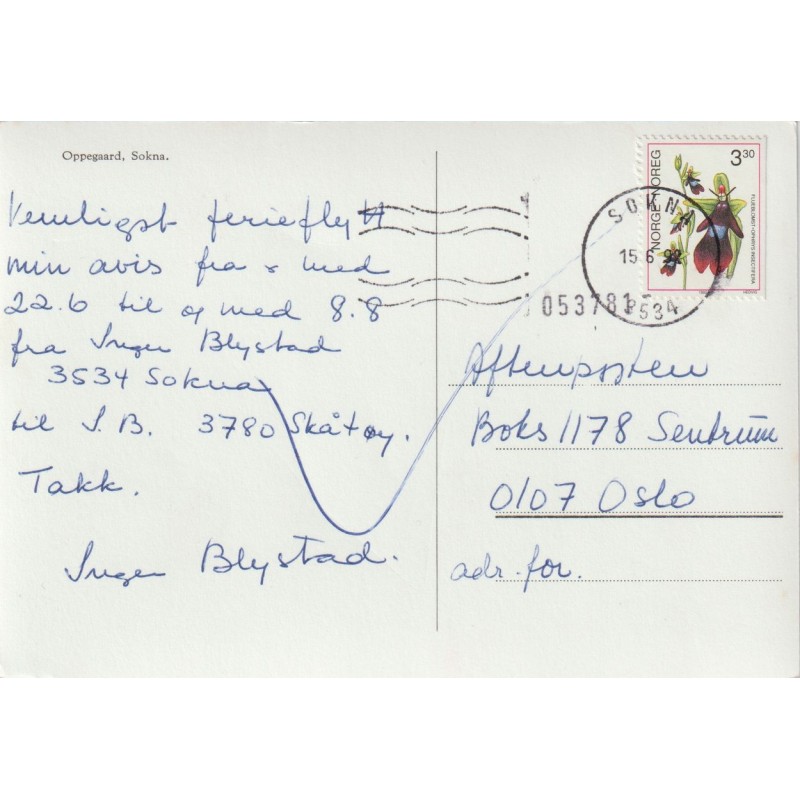 Oppegaard, Sokna.
Vennligst ferieflytt
min avis fra o med
22.6 til og med 8.8
fra Inger Blystad
3534 Sokna
til I.B. 3780 Skåtøy.
Takk.
Inger Blystad.
NORGE·NOREG
3³⁰
FLUEBLOMST·OPHRYS INSECTIFERA
SOKNA
15.6.92
3534
053781
Aftenposten
Boks 1178 Sentrum
0107 Oslo
adr. for.